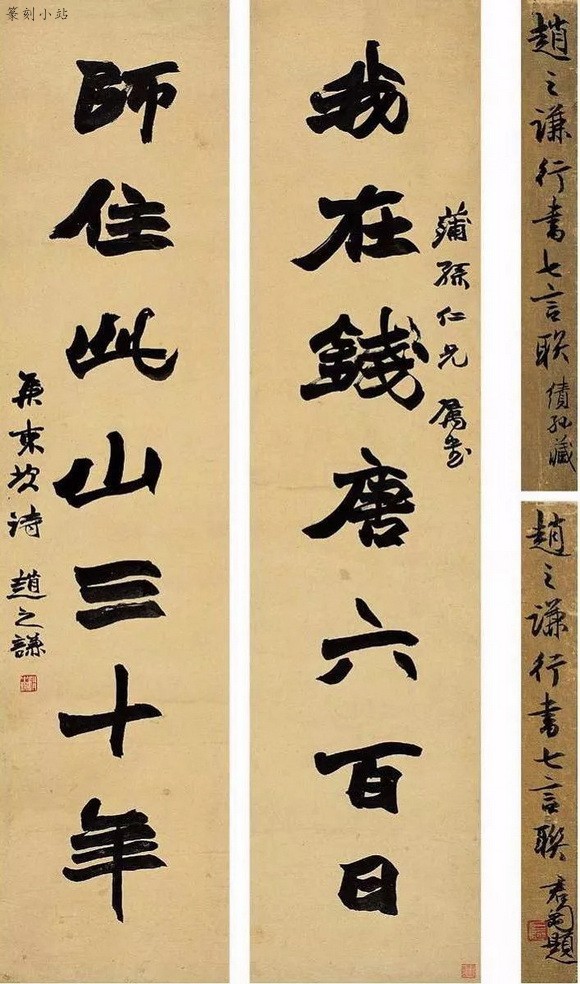 篆刻小站
蒲孫仁兄屬書
我在錢唐六百日
師住此山三十年
集東坡詩 趙之謙
趙之謙行書七言聯 績孫藏
趙之謙行書七言聯 君匋題